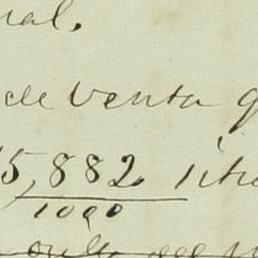 ial.
de venta q
15,882 litr
1000